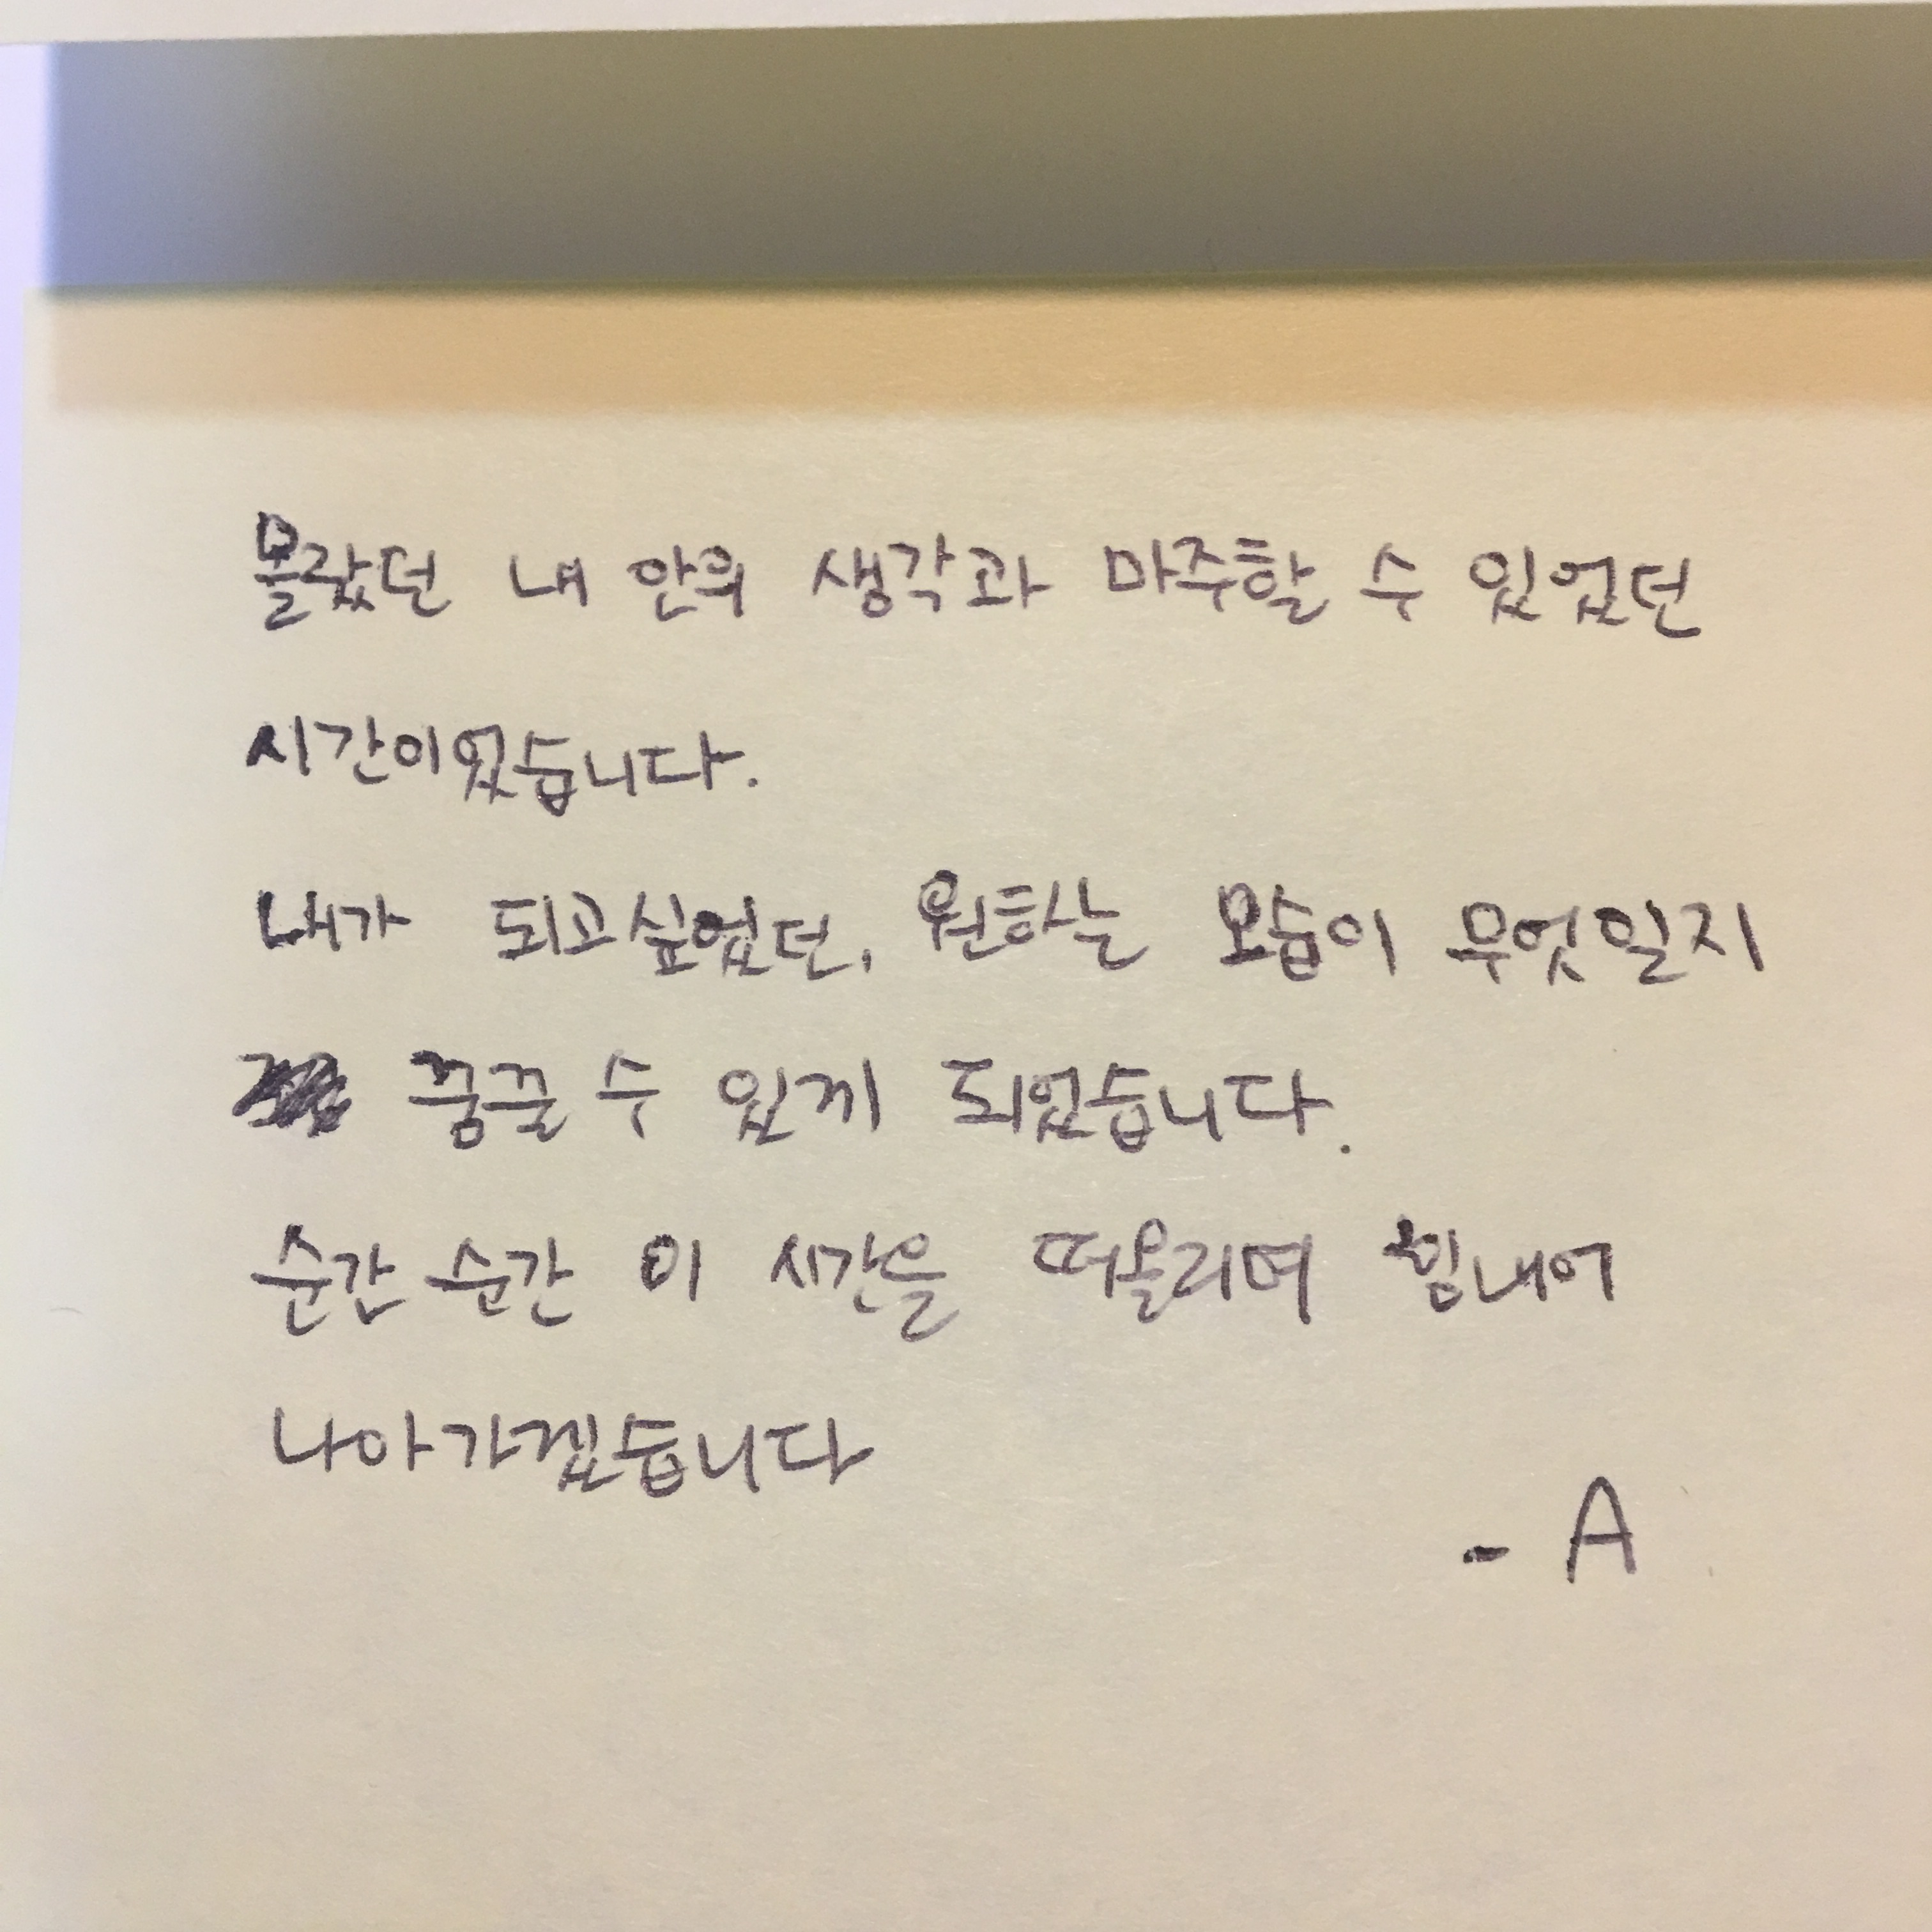 몰랐던 내 안의 생각과 마주할 수 있었던
시간이었습니다.
내가 되고싶었던, 원하는 모습이 무엇일지
꿈꿀 수 있게 되었습니다.
순간 순간 이 시간을 떠올리며 힘내어
나아가겠습니다
- A